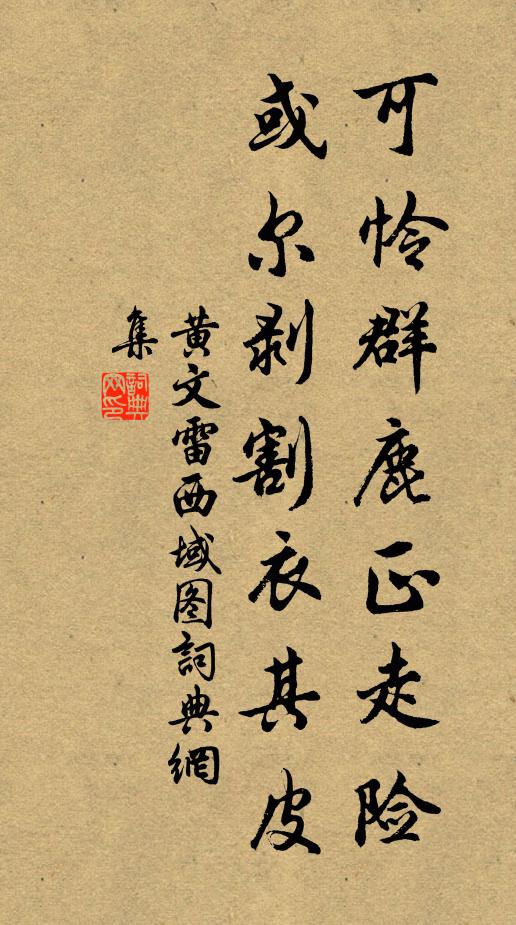 可怜群鹿正走险
或尔剥割衣其皮
黄文雷西域图詞典網
集
詞典
网印